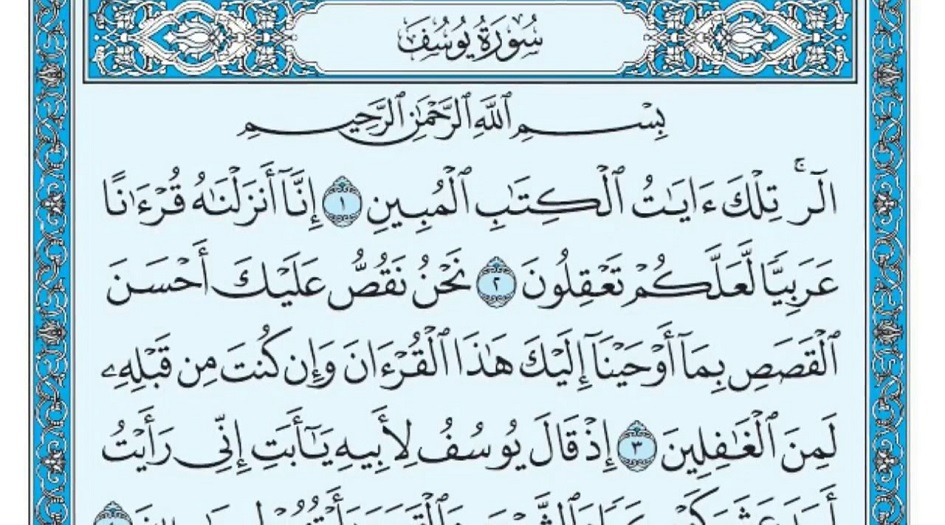 سُورَةُ يُوسُفَ
بِسْمِ ٱللَّهِ ٱلرَّحْمَٰنِ ٱلرَّحِيمِ
الٓرۚ تِلْكَ ءَايَٰتُ ٱلْكِتَٰبِ ٱلْمُبِينِ ١ إِنَّآ أَنزَلْنَٰهُ قُرْءَٰنًا
عَرَبِيًّا لَّعَلَّكُمْ تَعْقِلُونَ ٢ نَحْنُ نَقُصُّ عَلَيْكَ أَحْسَنَ
ٱلْقَصَصِ بِمَآ أَوْحَيْنَآ إِلَيْكَ هَٰذَا ٱلْقُرْءَانَ وَإِن كُنتَ مِن قَبْلِهِۦ
لَمِنَ ٱلْغَٰفِلِينَ ٣ إِذْ قَالَ يُوسُفُ لِأَبِيهِ يَٰٓأَبَتِ إِنِّى رَأَيْتُ